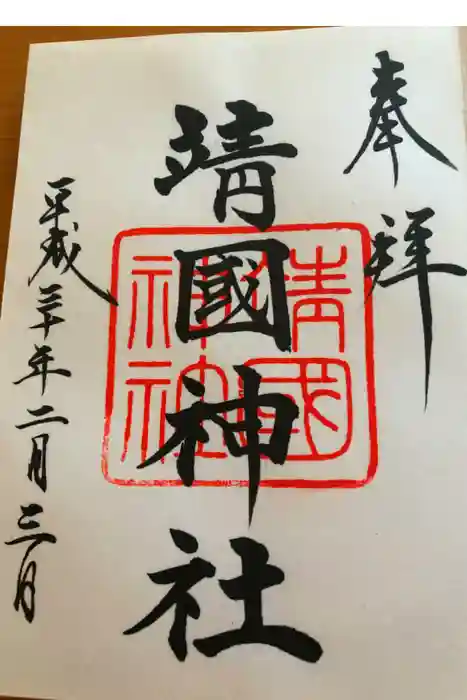 奉拝
靖國神社
平成三十年二月三日
靖國
神社